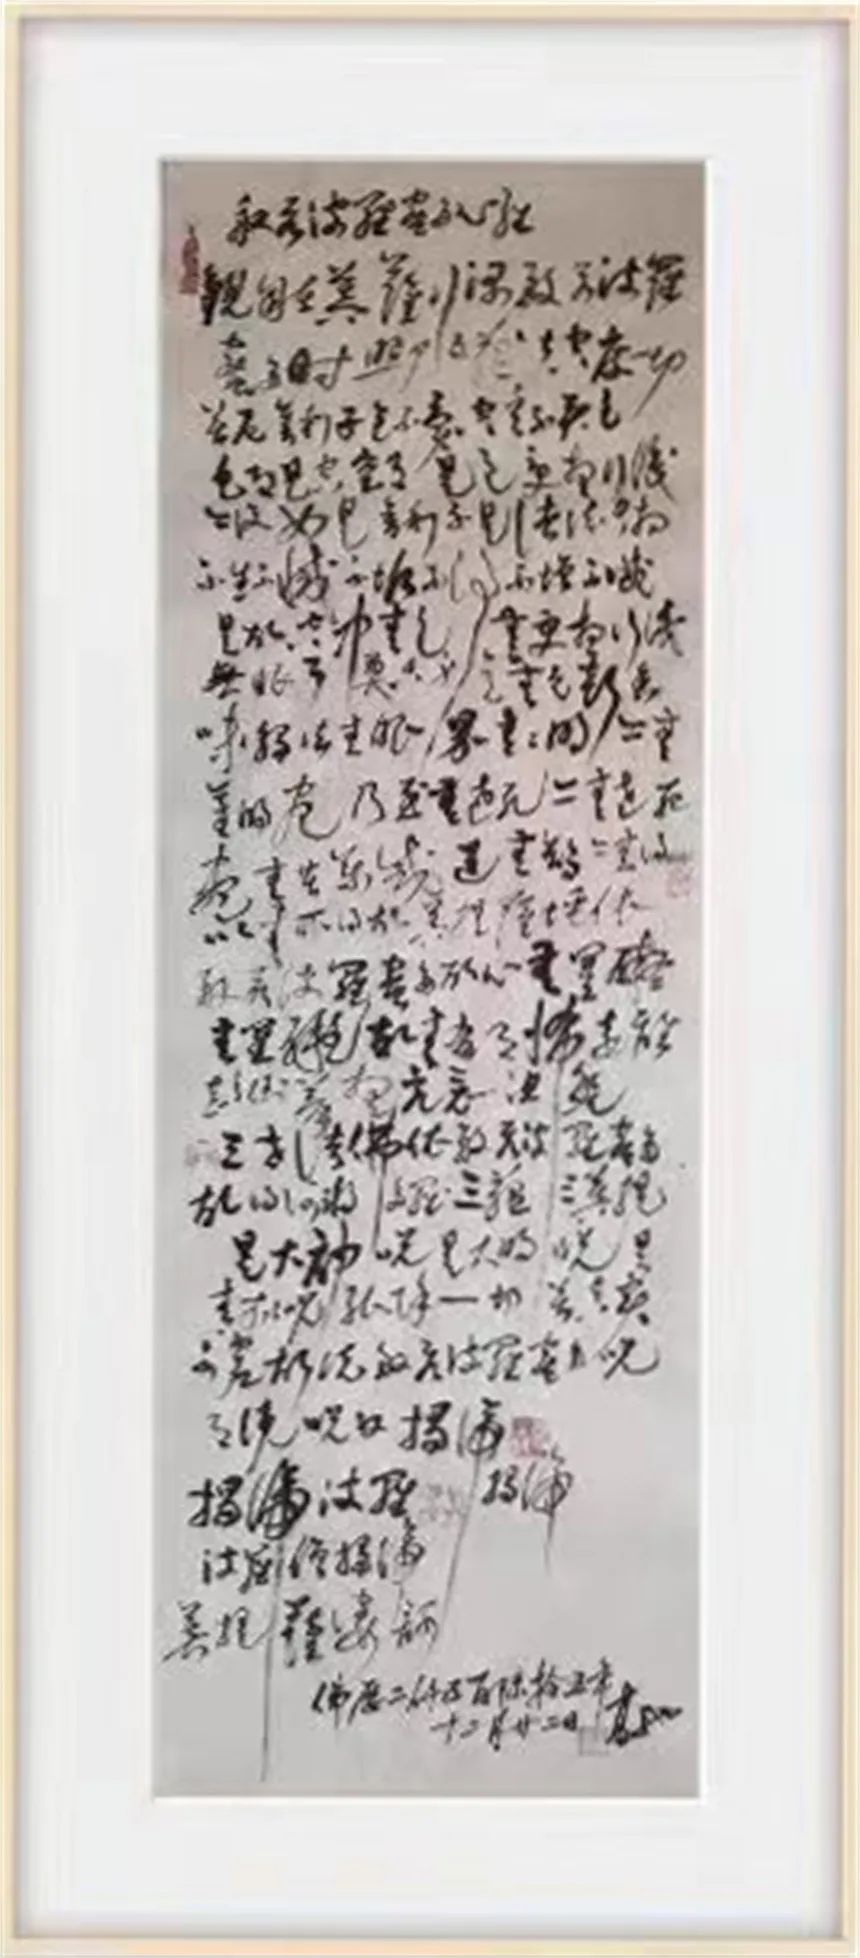 般若波羅蜜多心經
觀自在菩薩行深般若波羅
蜜多時照見五蘊皆空度一切
苦厄舍利子色不異空空不異色
色即是空空即是色受想行識
亦復如是舍利子是諸法空相
不生不滅不垢不淨不增不減
是故空中無色無受想行識
無眼耳鼻舌身意無色聲香
味觸法無眼界無無明亦無
無明盡乃至無老死亦無老死
盡無苦集滅道無智亦無得
以無所得故菩提薩埵依
般若波羅蜜多故心無罣礙
無罣礙故無有恐怖遠離
顛倒夢想究竟涅槃
三世諸佛依般若波羅蜜多
故得阿耨多羅三藐三菩提
是大神咒是大明咒是
無上咒 一切苦真實
不虛故說般若波羅蜜多咒
即說咒曰揭諦
揭諦
揭諦波羅
波羅僧揭諦
菩提薩婆訶
佛歷二仟五百陸拾五年
十二月廿二日